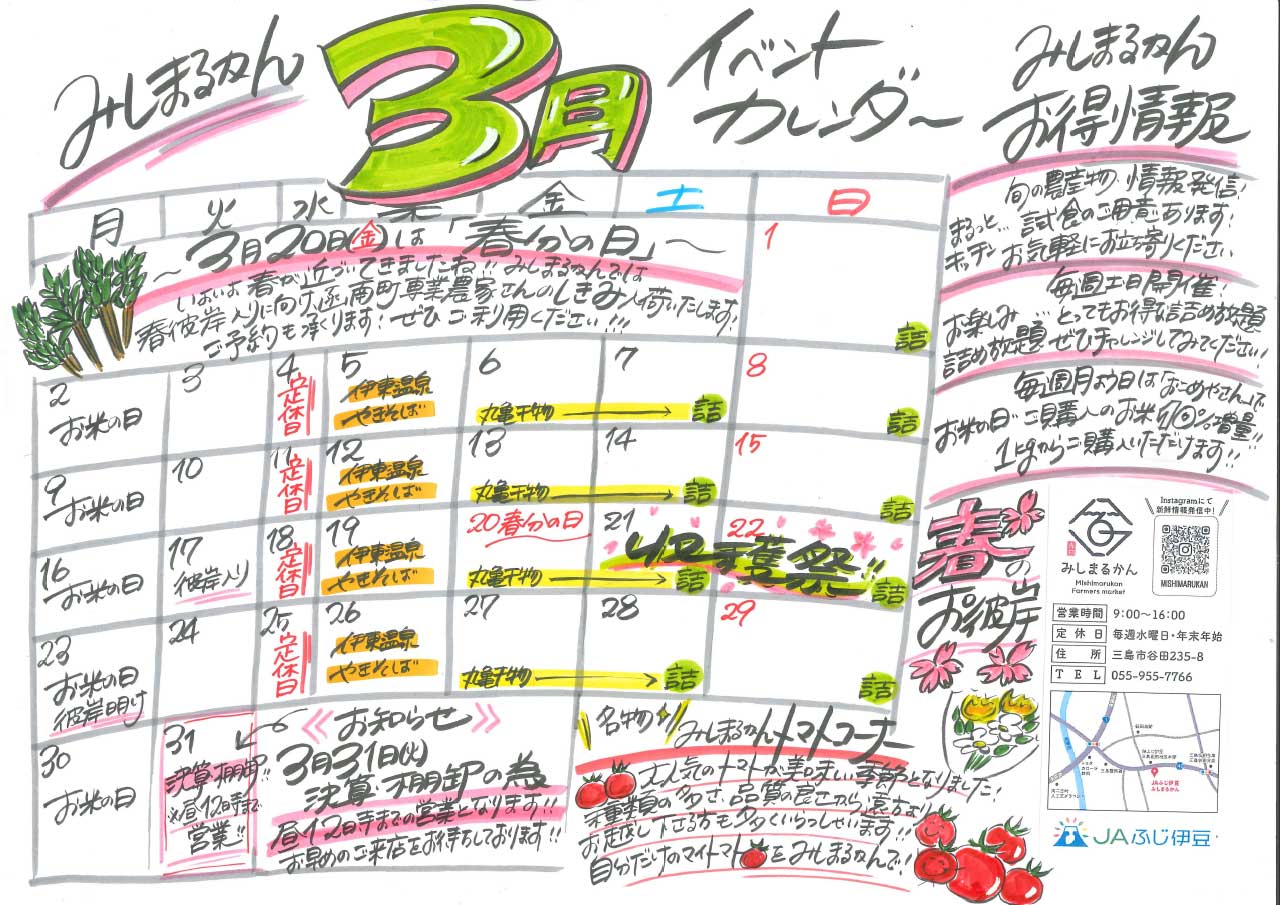 みしまるかん
3月
イベント
カレンダー
月 火 水 木 金 土 日
～3月20日(金)は「春分の日」～
いよいよ春が近づいてきましたね!!みしまるかんでは
春彼岸入りに向け、函南町専業農家さんのしきみ入荷いたします!
ご予約も承ります!ぜひご利用ください!!!
1
詰
2 3 4 5 6 7 8
お米の日
定休日
伊東温泉
やきそば
丸亀干物 → 詰
詰
9 10 11 12 13 14 15
お米の日
定休日
伊東温泉
やきそば
丸亀干物 → 詰
詰
16 17 18 19 20 21 22
お米の日
彼岸入り
定休日
伊東温泉
やきそば
春分の日
収穫祭!!
丸亀干物 → 詰
詰
23 24 25 26 27 28 29
お米の日
彼岸明け
定休日
伊東温泉
やきそば
丸亀干物 → 詰
詰
30 31
お米の日
決算・棚卸!!
※昼12時まで
営業!!
《お知らせ》
3月31日(火)
決算・棚卸の為
昼12時までの営業となります!!
お早めのご来店をお待ちしております!!
名物
みしまるかんトマトコーナー
大人気のトマトが美味しい季節となりました!
種類の多さ、品質の良さから、遠方より
お越し下さる方も多くいらっしゃいます!!
自分だけのマイトマトをみしまるかんで!
みしまるかん
お得情報
旬の農産物、情報発信!
まるっと…試食のご用意あります!
キッチン お気軽にお立ち寄りください
毎週土日開催!
お楽しみ…とってもお得な詰め放題
詰め放題 ぜひチャレンジしてみてください!
毎週月よう日は「おこめやさん」で
お米の日 ご購入のお米10%増量!!
1kgからご購入いただけます!!
春の
お彼岸
みしまるかん
Mishimarukan
Farmers market
Instagramにて
新鮮情報発信中!
MISHIMARUKAN
営業時間 9:00～16:00
定休日 毎週水曜日・年末年始
住所 三島市谷田235-8
TEL 055-955-7766
JAふじ伊豆
みしまるかん
JAふじ伊豆